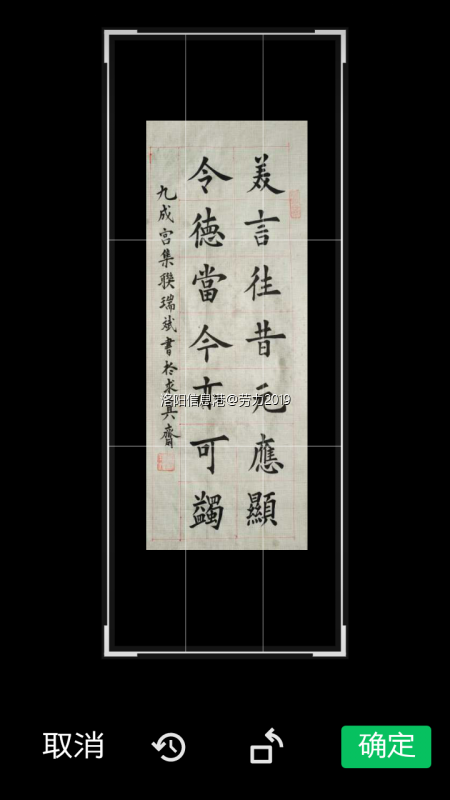 美言往昔元應顯
令德當今亦可蠲
九成宮集聯瑞斌書於求其齋
洛阳信息港@劳力2019
取消
确定